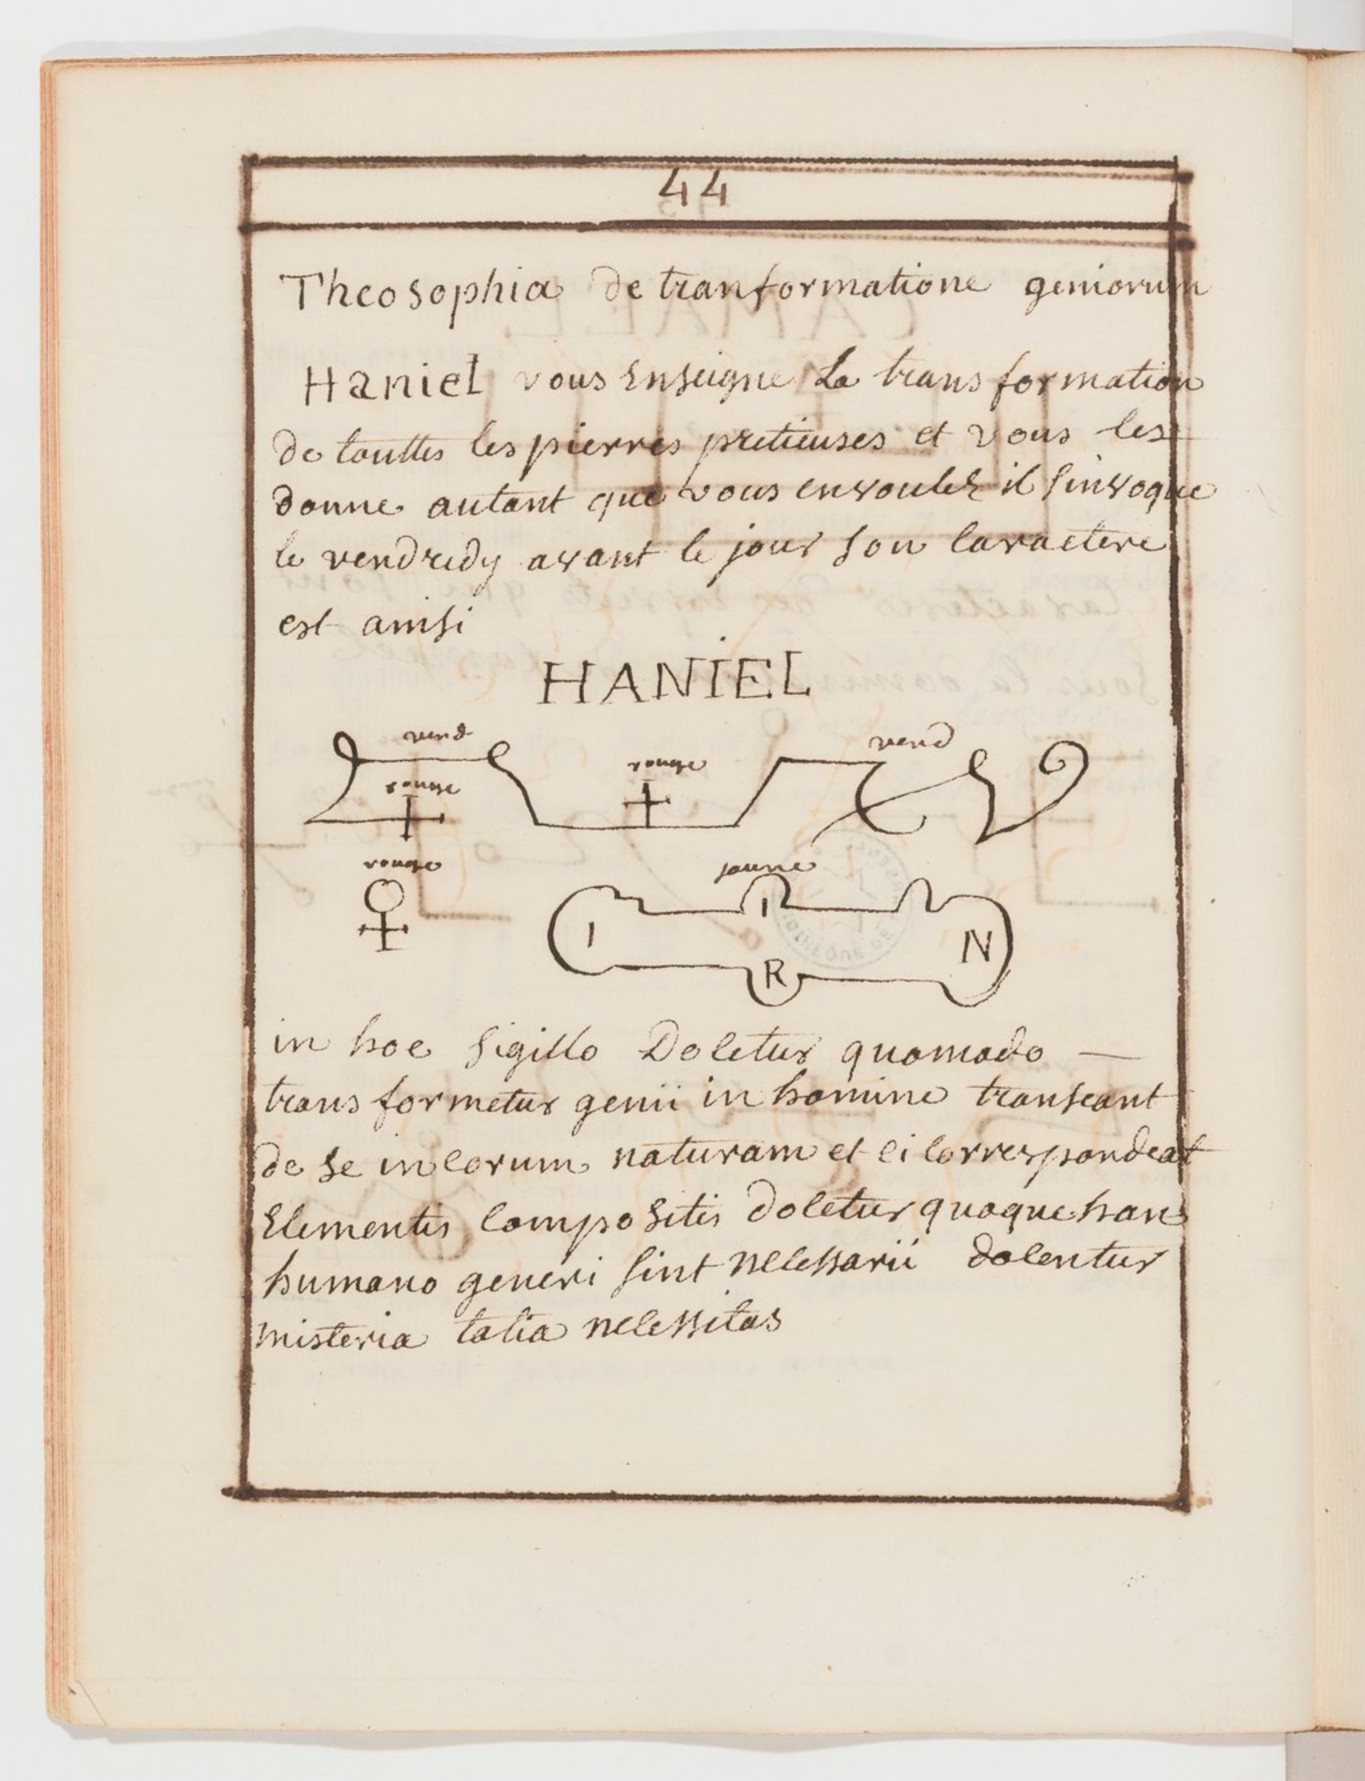 44
Theosophia de tranformatione geniorum
Haniel vous enseigne la transformation
de touttes les pierres pretieuses et vous les
donne autant que vous en voulez il sinvoque
le vendredy avant le jour son caractere
est ainsi
HANIEL
verd verd
rouge rouge
rouge jaune
I I N
R
in hoc sigillo Docetur quomodo —
transformetur genii in homine transeant
de se in corum naturam et ei correspondeat
Elementis compositis docetur quoque han
humano generi sint necessarii docentur
misteria talia necessitas